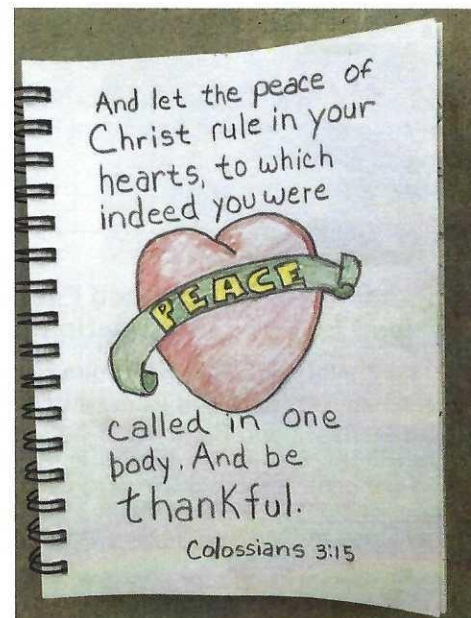 And let the peace of
Christ rule in your
hearts, to which
indeed you were
PEACE
called in one
body. And be
thankful.
Colossians 3:15